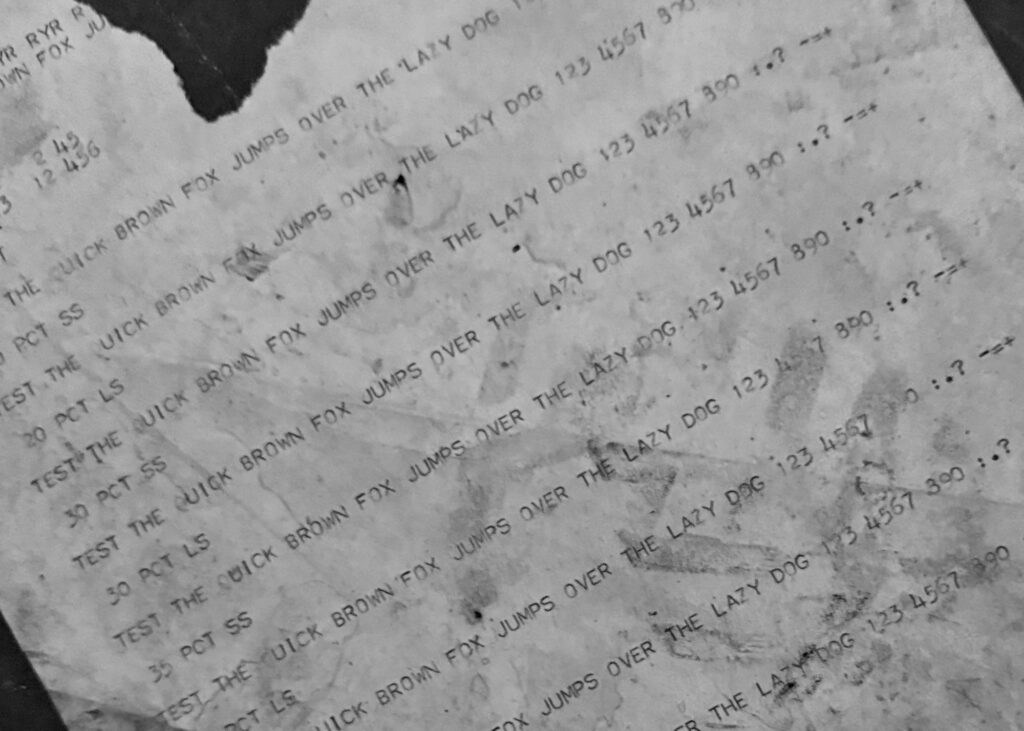 YR RYR R
OWN FOX JU
2 45
12 456
THE QUICK BROWN FOX JUMPS OVER THE LAZY DOG 1
0 PCT SS
TEST THE QUICK BROWN FOX JUMPS OVER THE LAZY DOG 123 4567 890
20 PCT LS
TEST THE QUICK BROWN FOX JUMPS OVER THE LAZY DOG 123 4567 890 :.? -=+
30 PCT SS
TEST THE QUICK BROWN FOX JUMPS OVER THE LAZY DOG 123 4567 890 :.? -=+
30 PCT LS
TEST THE QUICK BROWN FOX JUMPS OVER THE LAZY DOG 123 4567 890 :.? -=+
35 PCT SS
TEST THE QUICK BROWN FOX JUMPS OVER THE LAZY DOG 123 4567 890 :.? -=+
PCT LS
QUICK BROWN FOX JUMPS OVER THE LAZY DOG 123 4567 :.? -=+
FOX JUMPS OVER THE LAZY DOG 123 4567 890 :.?
ER THE LAZY DOG 123 4567 890